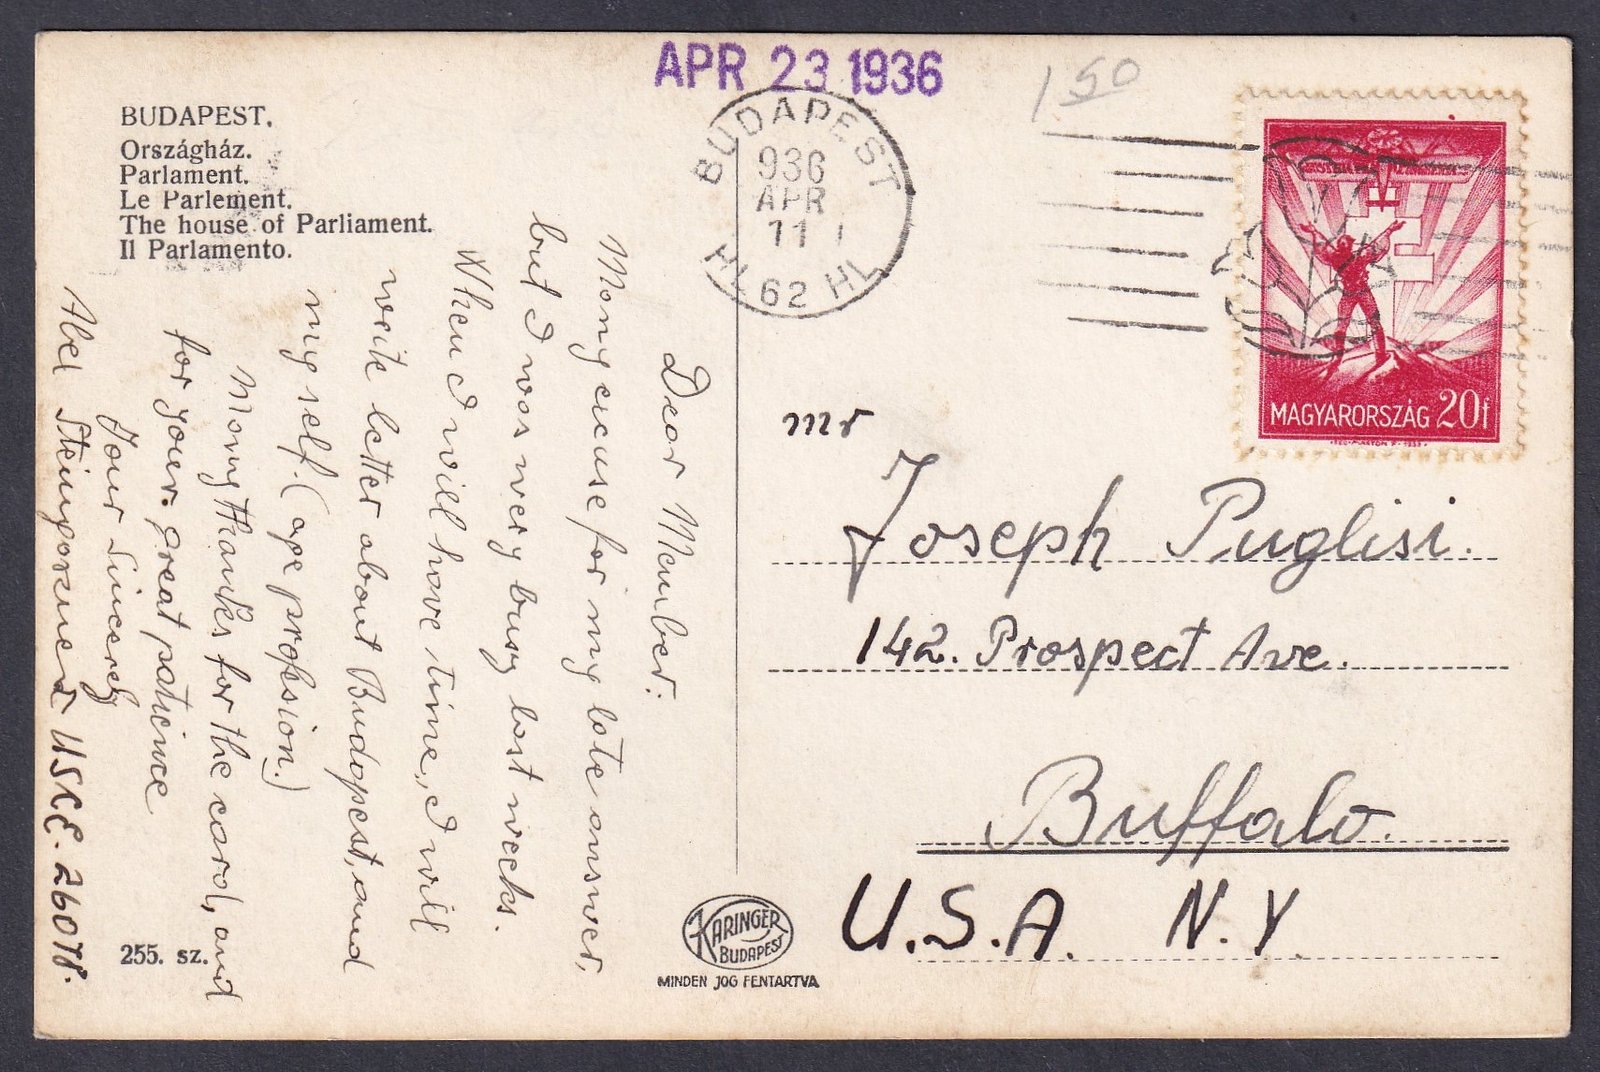 APR 23 1936
1 50
BUDAPEST.
Országház.
Parlament.
Le Parlement.
The house of Parliament.
Il Parlamento.
BUDAPEST
936
APR
11
HL 62 HL
MAGYARORSZÁG 20f
Dear Member:
Mony excuse for my late answer,
but I was very busy last weeks.
When I will have time, I will
write letter about Budapest, and
my self. (ape profession.)
Mony thanks for the card, and
for your great patience
Your Sincerely
Abel USCE. 26078.
mr
Joseph Puglisi.
142. Prospect Ave.
Buffalo.
U.S.A. N.Y
255. sz.
KARINGER
BUDAPEST
MINDEN JOG FENTARTVA